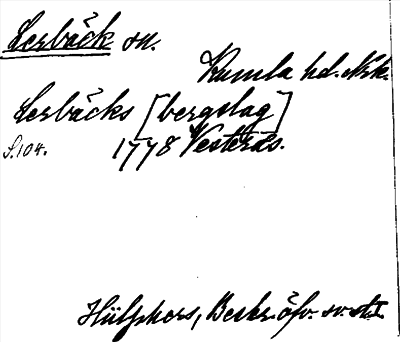 Lerbäck sn.
Kumla hd. Nrk.
Lerbäcks [bergslag]
S. 104. 1778 Vesterås.
Hülphers, Beskr. öfv. sv. st. I